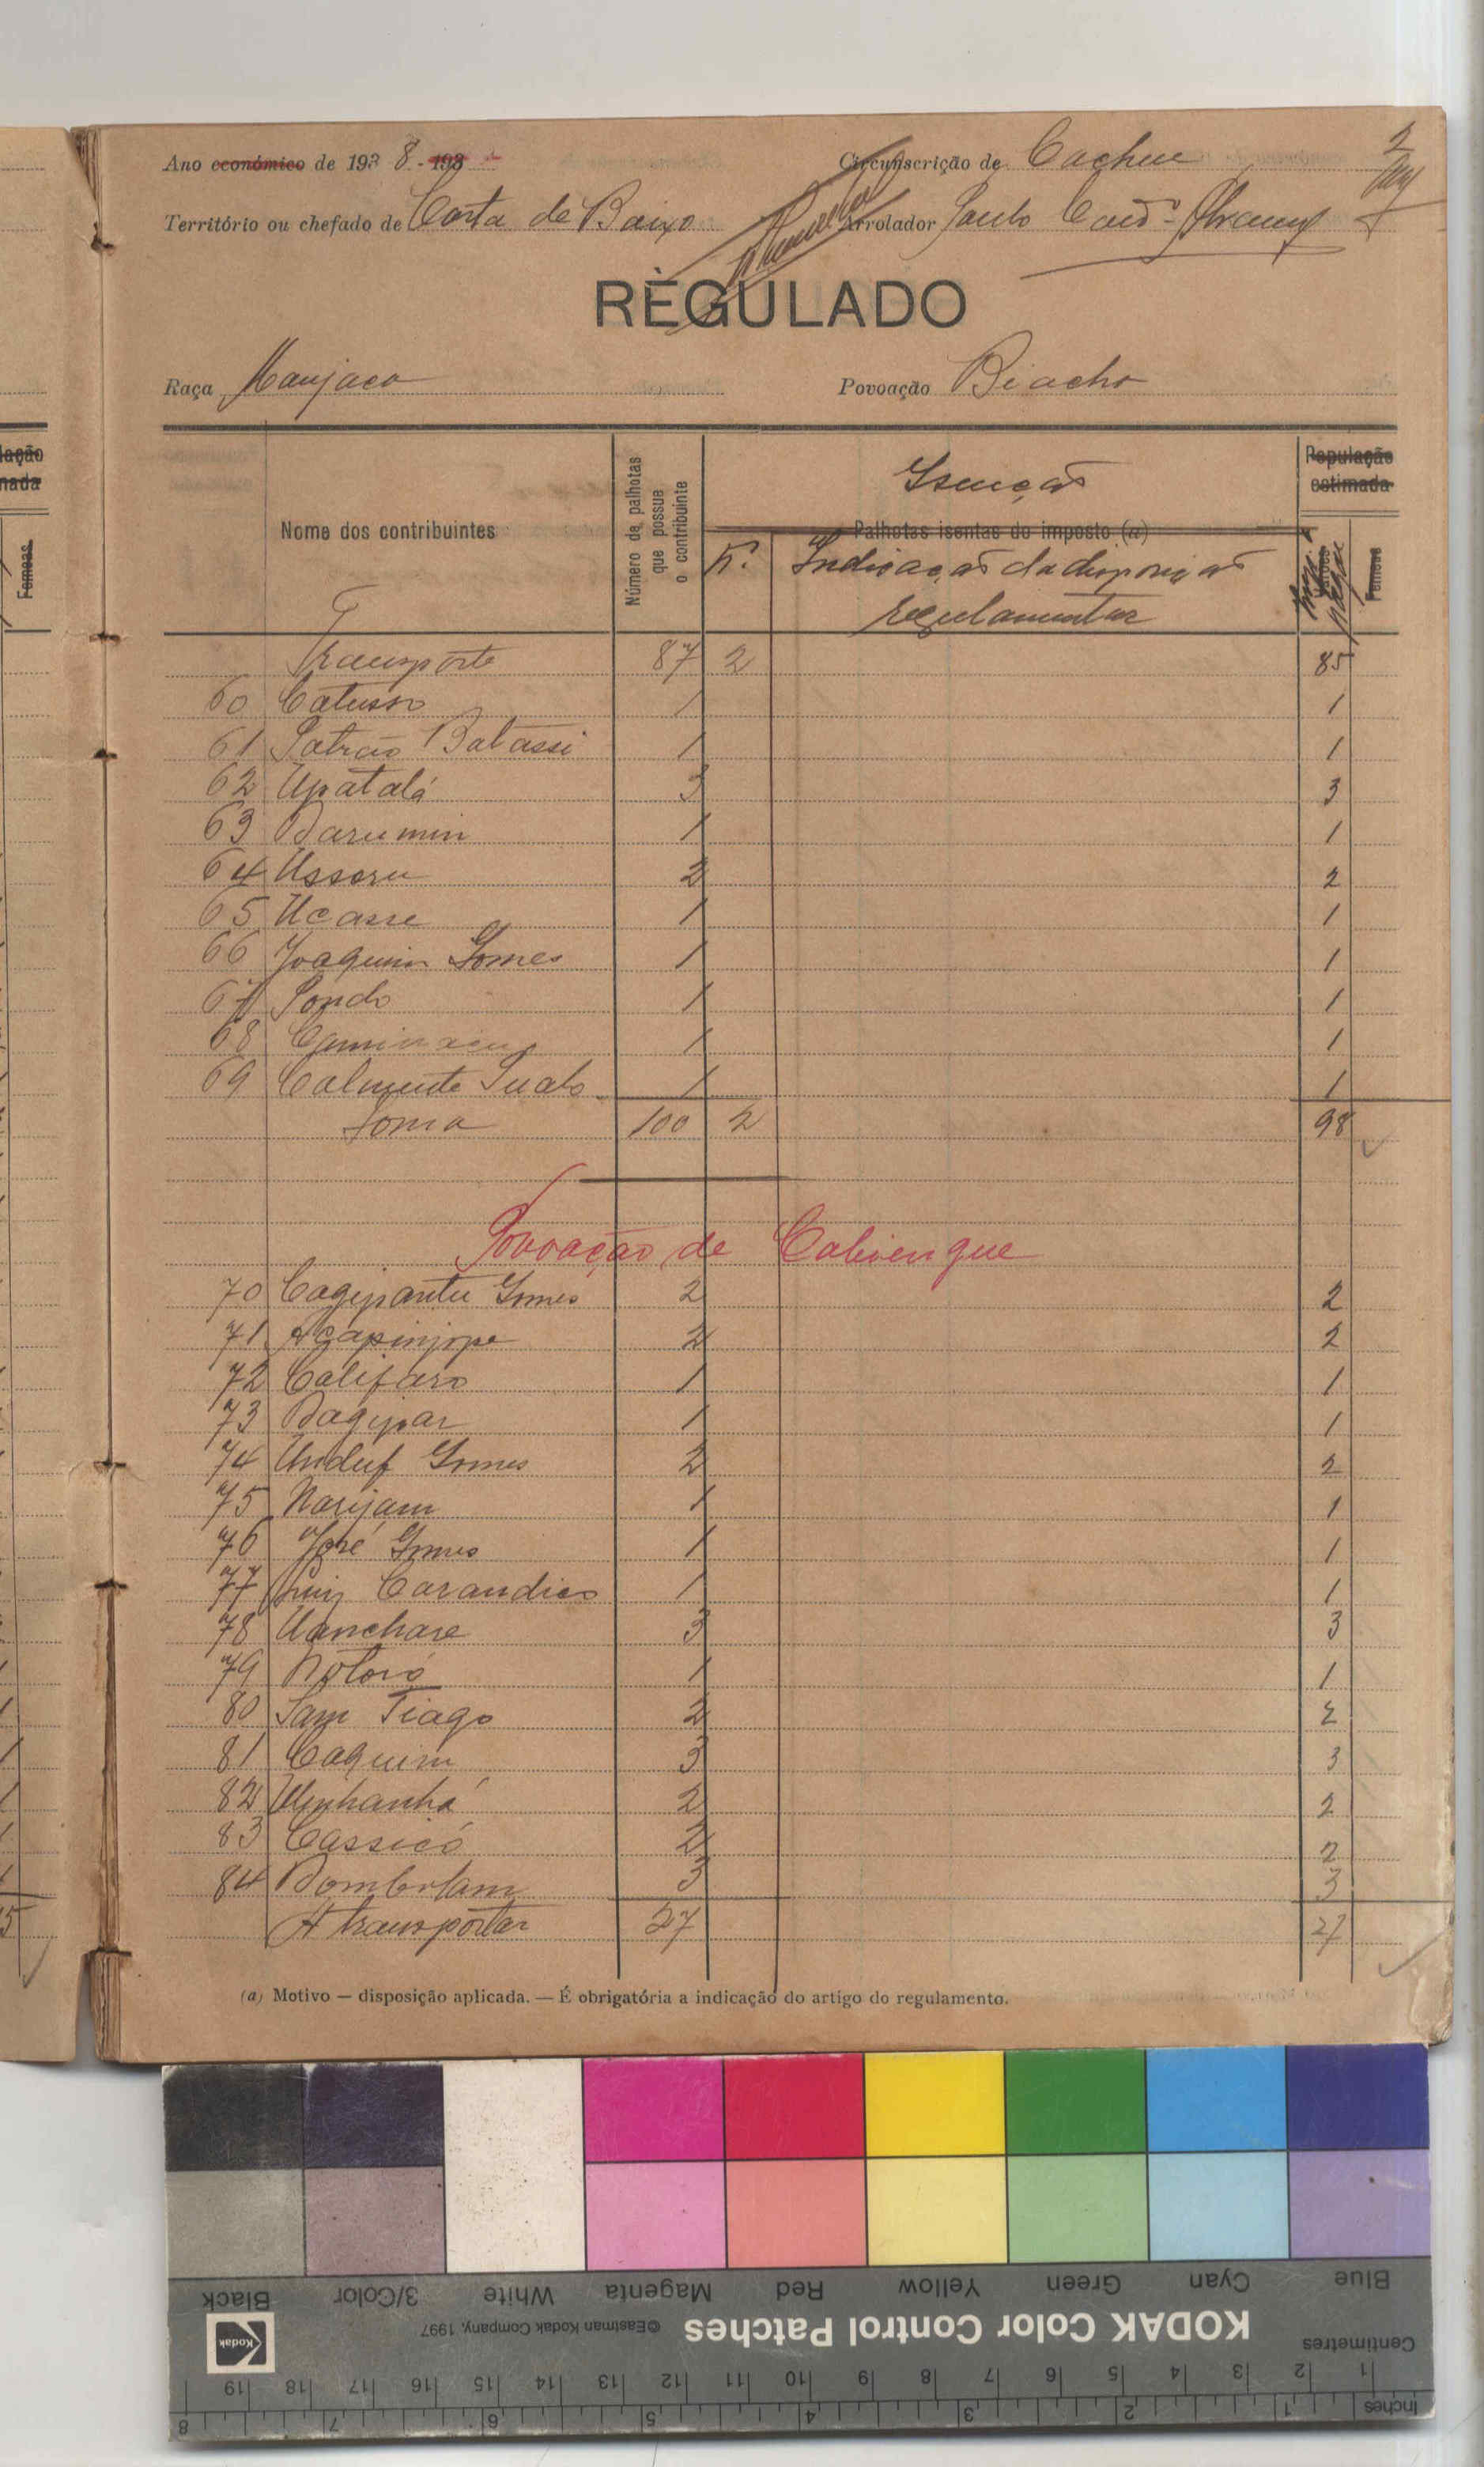 Ano económico de 1938 - 193
Circunscrição de Cacheu
2
Território ou chefado de Costa de Baixo
Arrolador Paulo
REGULADO
Raça Manjaco
Povoação Biacho
lação
nada
Femeas
Nome dos contribuintes
Número de palhotas
que possue
o contribuinte
Isenção
Palhotas isentas do imposto (a)
N.º Indicação da disposição
regulamentar
População
estimada
Femeas
Transporte 87 2 85
60 Catusso 1 1
61 Patrão Batassi 1 1
62 Upatalá 3 3
63 Darumin 1 1
64 Ussoru 2 2
65 Ucasse 1 1
66 Joaquim Gomes 1 1
67 Pondo 1 1
68 1 1
69 Calmente 1 1
Soma 100 2 98
Povoação de Cabienque
70 Cagipantu Gomes 2 2
71 Agapinjope 2 2
72 Califaro 1 1
73 Dagipar 1 1
74 Unduf Gomes 2 2
75 Narijam 1 1
76 José Gomes 1 1
77 Luiz Carandico 1 1
78 Uanchare 3 3
79 Notoró 1 1
80 Sam Tiago 2 2
81 Caquim 3 3
82 Unhanhá 2 2
83 Cassicó 2 2
84 Dombolam 3 3
A transportar 27 27
5
(a) Motivo — disposição aplicada. — É obrigatória a indicação do artigo do regulamento.
Blue Cyan Green Yellow Red Magenta White 3/Color Black
KODAK Color Control Patches ©Eastman Kodak Company, 1997
Kodak
Centimetres 1 2 3 4 5 6 7 8 9 10 11 12 13 14 15 16 17 18 19
Inches 1 2 3 4 5 6 7 8